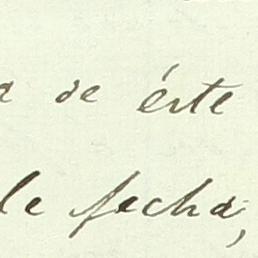 de éste
de fecha,